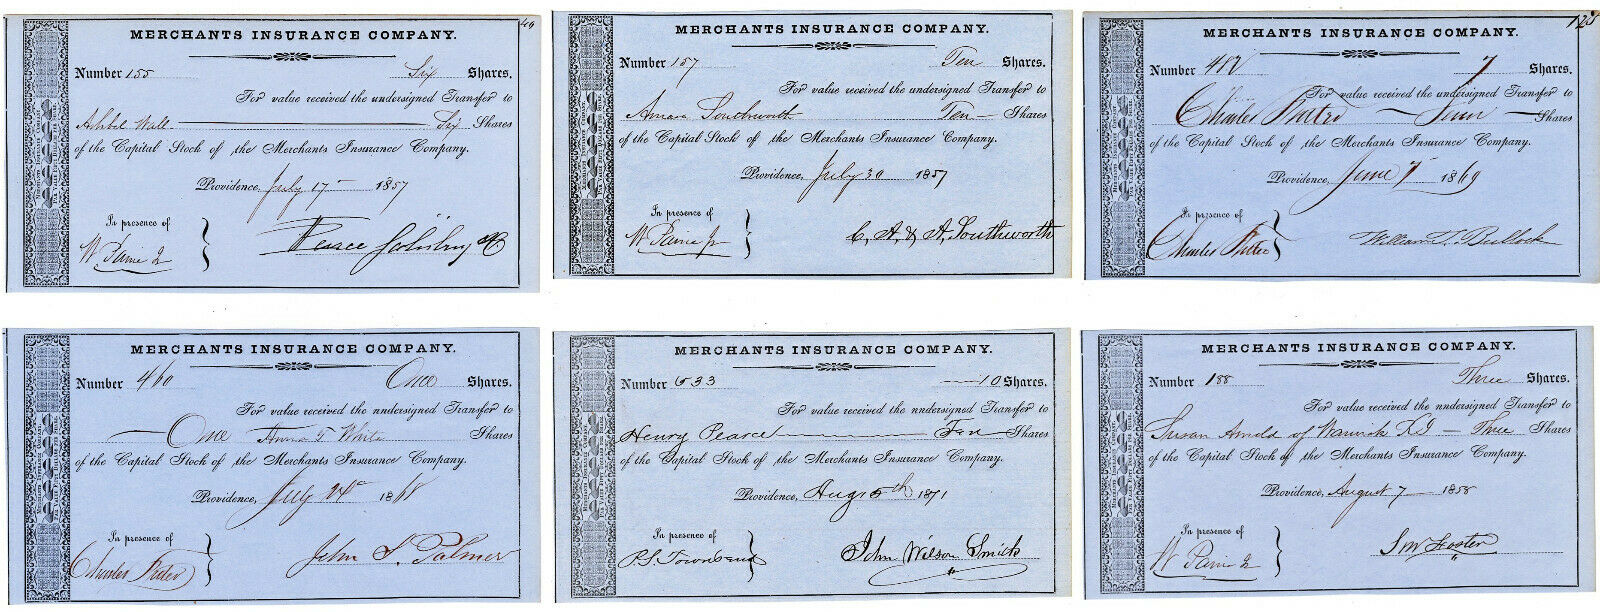 49
MERCHANTS INSURANCE COMPANY.
Number 155 Six Shares.
For value received the undersigned Transfer to
Ashbel Wall Six Shares
of the Capital Stock of the Merchants Insurance Company.
Providence, July 17 1857
In presence of
W Paine Jr
Pearce Salisbury & Co
MERCHANTS INSURANCE COMPANY.
Number 157 Ten Shares.
For value received the undersigned Transfer to
Amasa Southworth Ten Shares
of the Capital Stock of the Merchants Insurance Company.
Providence, July 30 1857
In presence of
W Paine Jr
C, A, & A, Southworth
128
MERCHANTS INSURANCE COMPANY.
Number 7 Shares.
For value received the undersigned Transfer to
Charles Shares
of the Capital Stock of the Merchants Insurance Company.
Providence, June 7 1869
In presence of
Charles
William T. Bullock
MERCHANTS INSURANCE COMPANY.
Number 460 One Shares.
For value received the nndersigned Transfer to
One Anna T White Shares
of the Capital Stock of the Merchants Insurance Company.
Providence, July 24 1868
In presence of
Charles
John S. Palmer
MERCHANTS INSURANCE COMPANY.
Number 533 10 Shares.
For value received the nndersigned Transfer to
Henry Pearce Ten Shares
of the Capital Stock of the Merchants Insurance Company.
Providence, Aug 5th 1871
In presence of
P. S. Townsend
John Wilson Smith
MERCHANTS INSURANCE COMPANY.
Number 188 Three Shares.
For value received the nndersigned Transfer to
Susan Arnold of Warwick RI Three Shares
of the Capital Stock of the Merchants Insurance Company.
Providence, August 7 1858
In presence of
W Paine Jr
S W Foster